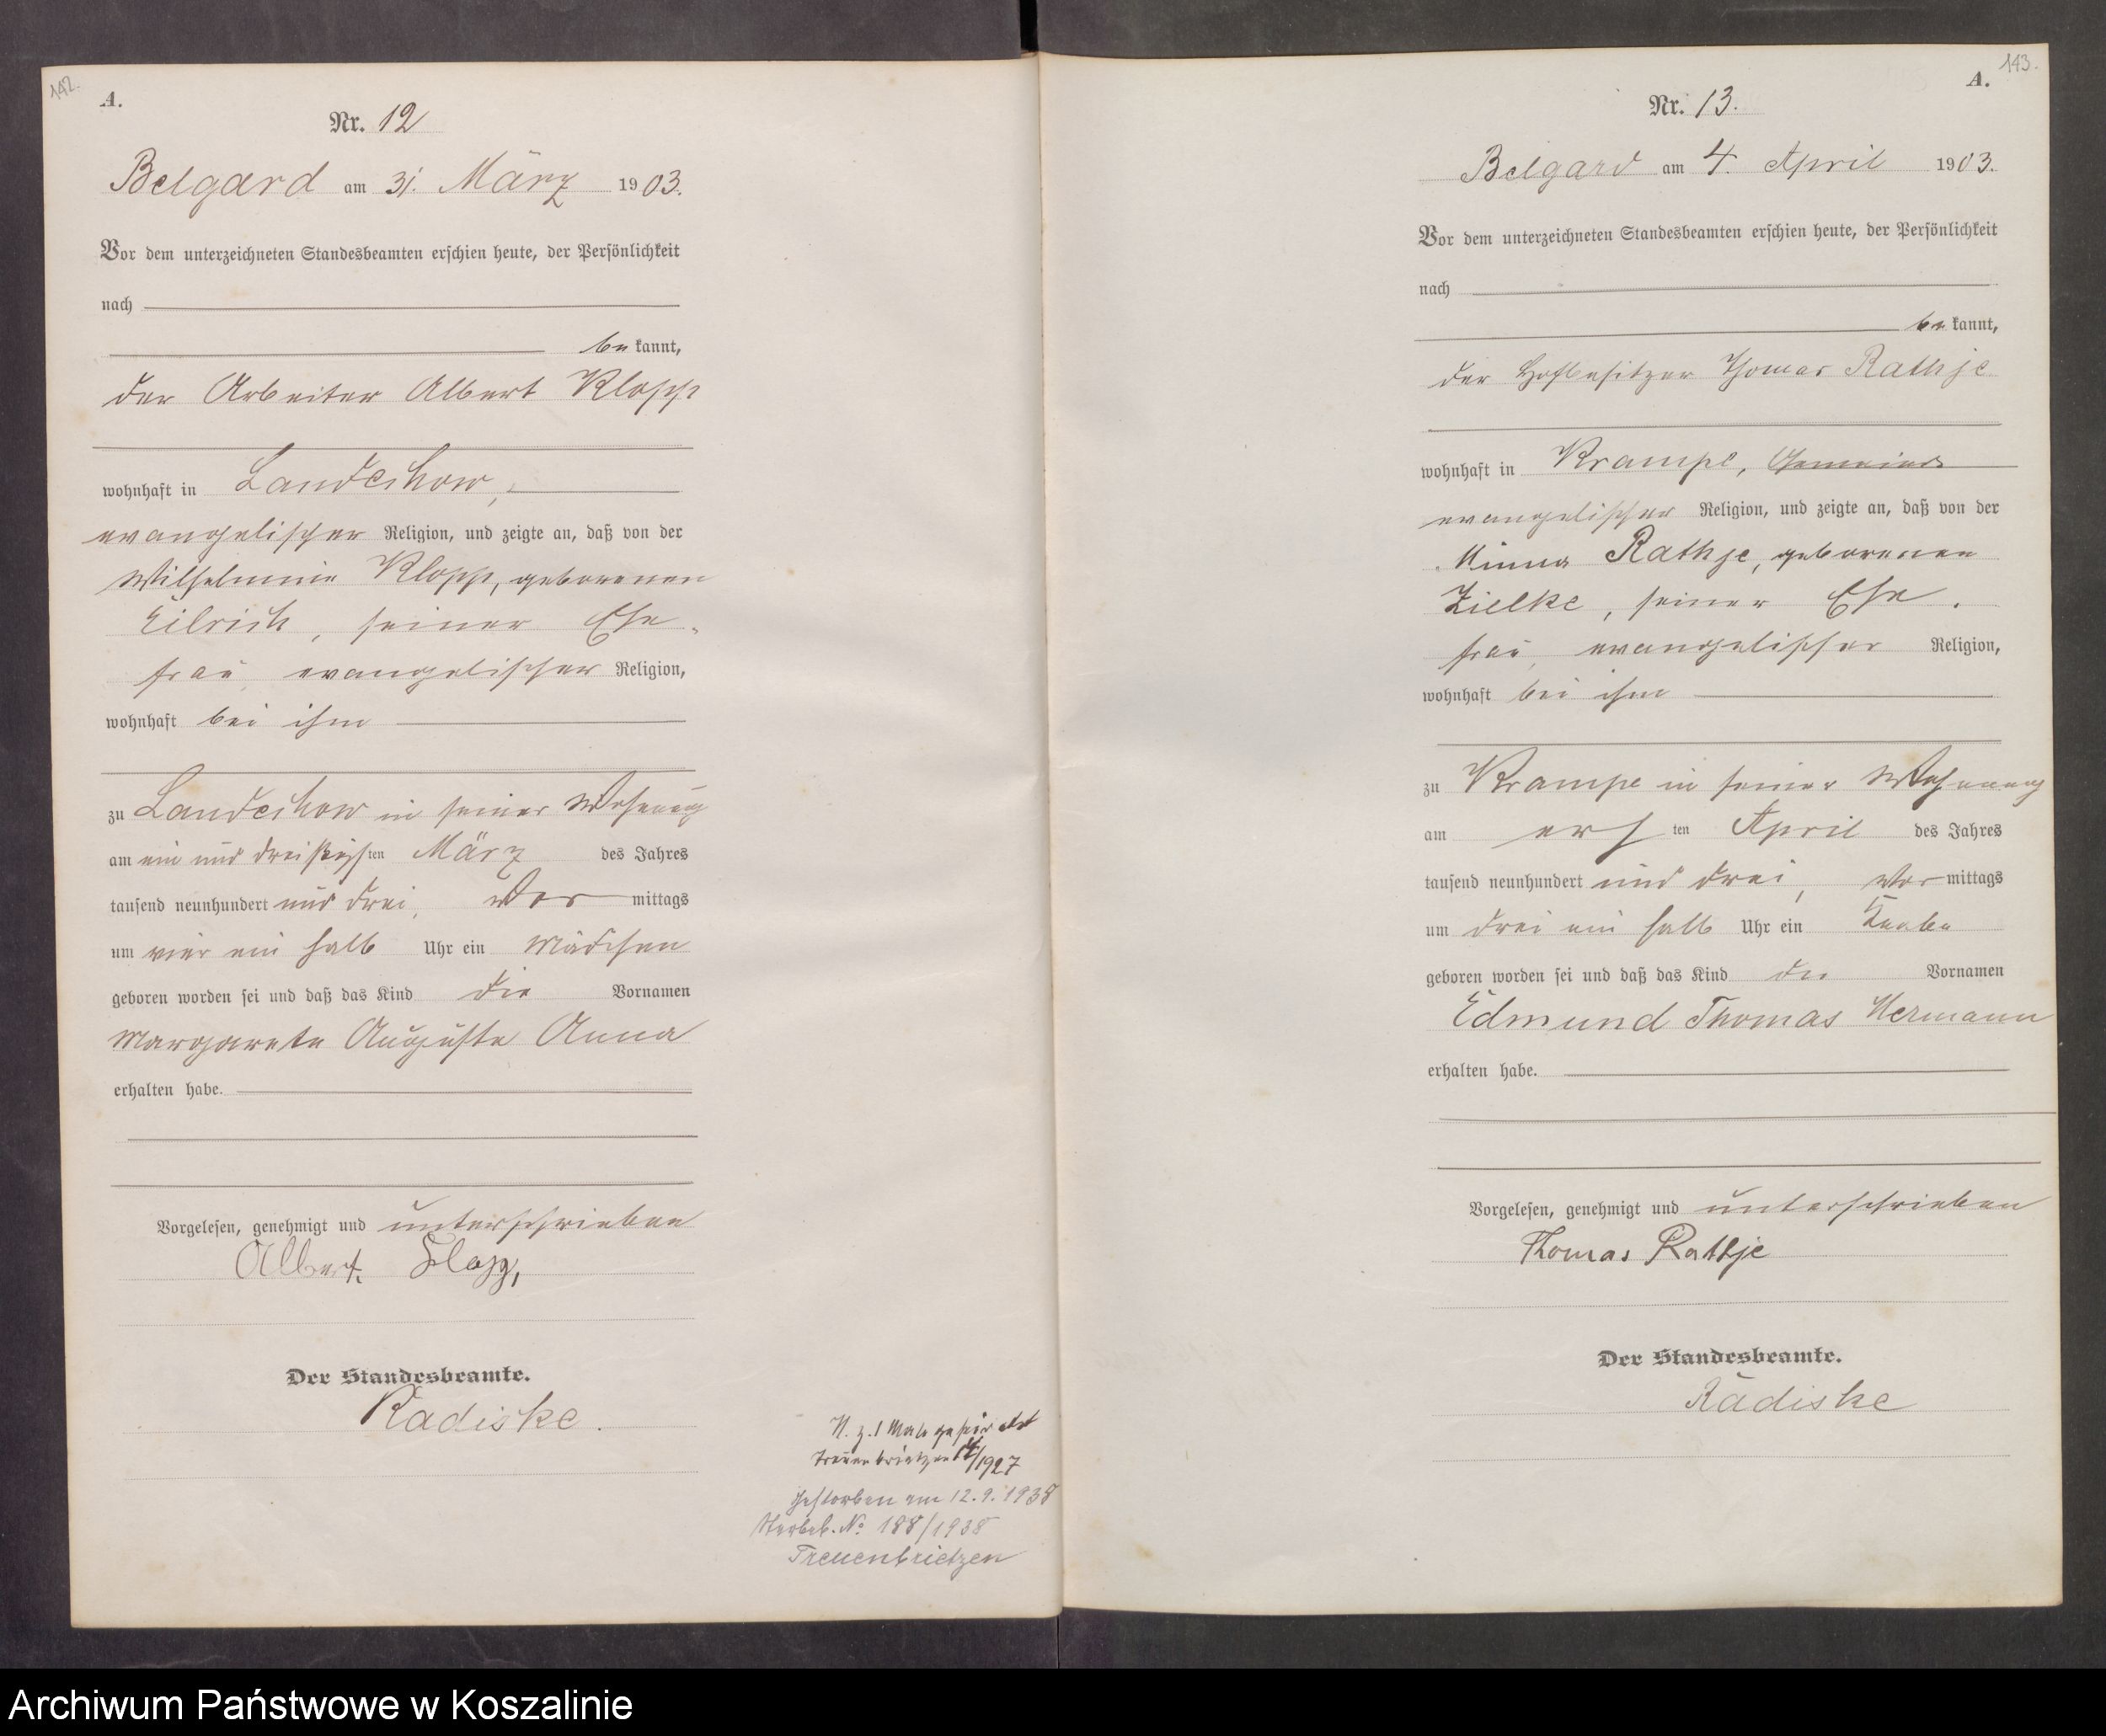 142.
A.
Nr. 12
Belgard am 31. März 1903.
Vor dem unterzeichneten Standesbeamten erschien heute, der Persönlichkeit
nach
bekannt,
der Arbeiter Albert Klopp
wohnhaft in Landechow,
evangelischer Religion, und zeigte an, daß von der
Wilhelmine Klopp, geborenen
Eilrich, seiner Ehe-
frau, evangelischer Religion,
wohnhaft bei ihm
zu Landechow in seiner Wohnung
am ein und dreißigsten März des Jahres
tausend neunhundert und drei, Vor mittags
um vier ein halb Uhr ein Mädchen
geboren worden sei und daß das Kind die Vornamen
Margarete Auguste Anna
erhalten habe.
Vorgelesen, genehmigt und unterschrieben
Albert Klopp,
Der Standesbeamte.
Radiske.
N. z. 1 Male geheiratet
Treuenbrietzen /1927
Gestorben am 12.9.1938
Sterbeb. No 188/1938
Treuenbrietzen
143.
A.
Nr. 13.
Belgard am 4. April 1903.
Vor dem unterzeichneten Standesbeamten erschien heute, der Persönlichkeit
nach
bekannt,
der Hofbesitzer Thomas Rathje
wohnhaft in Krampe, Gemeinde
evangelischer Religion, und zeigte an, daß von der
Minna Rathje, geborenen
Zielke, seiner Ehe-
frau, evangelischer Religion,
wohnhaft bei ihm
zu Krampe in seiner Wohnung
am ersten April des Jahres
tausend neunhundert und drei, Vor mittags
um drei ein halb Uhr ein Knabe
geboren worden sei und daß das Kind die Vornamen
Edmund Thomas Hermann
erhalten habe.
Vorgelesen, genehmigt und unterschrieben
Thomas Rathje
Der Standesbeamte.
Radiske
Archiwum Państwowe w Koszalinie